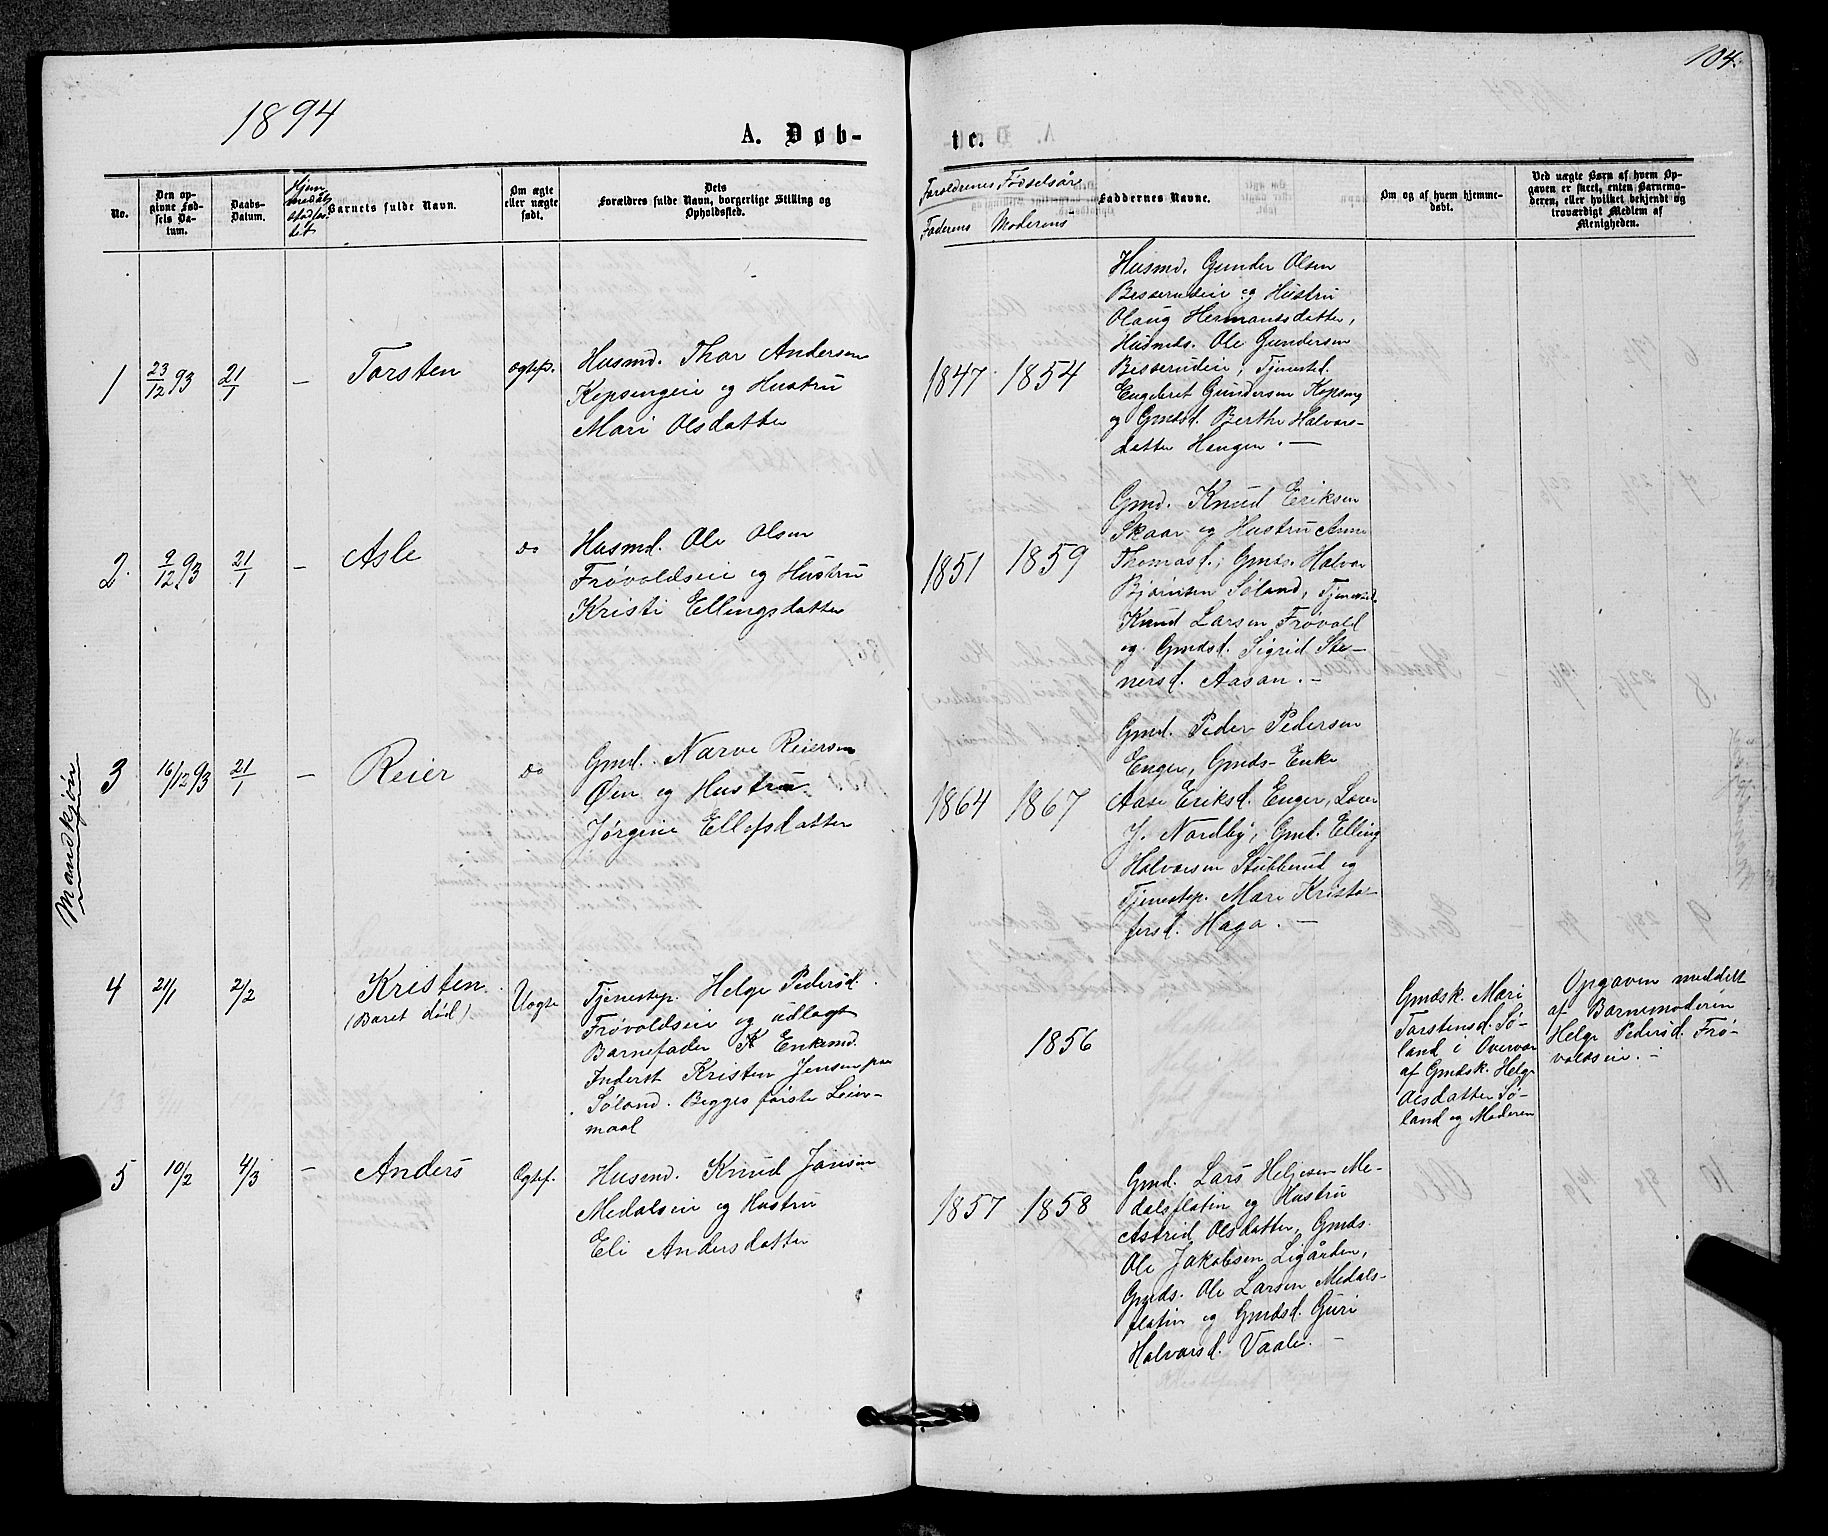 104.
1894
A. Døb-
te.
No.
Den op-
givne Fød-
sels Da-
tum.
Daabs-
Datum.
Hjem-
medøbt
stadfæ-
stet
Barnets fulde Navn.
Om ægte
eller uægte
født.
Dets
Forældres fulde Navn, borgerlige Stilling og
Opholdssted.
Forældrenes Fødselsår
Faderens Moderens
Faddernes Navne.
Om og af hvem hjemme-
døbt.
Ved uægte Børn af hvem Op-
gaven er skeet, enten Barnemo-
deren, eller hvilket bekjendt og
troværdigt Medlem af
Menigheden.
Mandkjøn
1
23/12 93
21/1
—
Torsten
Ægtef.
Husmd. Thor Andersen
Kopsengeie og Hustru
Mari Olsdatter
1847. 1854
Husmd. Gunder Olsen
Besserudeie og Hustru
Olaug Hermansdatter,
Husmds. Ole Gundersen
Besserudeie, Tjenestd.
Engebret Gundersen Kopseng
og Gmdsd. Berthe Halvors-
datter Haugen. —
2.
9/12 93
21/1
—
Asle
do
Husmd. Ole Olsen
Frøvoldseie og Hustru
Kristi Ellingsdatter
1851 1859
Gmd. Knud Eriksen
Skaar og Hustru Anne
Thomasd., Gmds. Halvor
Bjørnsen Søland, Tjenestd.
Knud Larsen Frøvold
og Gmdsd. Sigrid Ste-
nersd. Aasan. —
3
16/12 93
21/1
—
Reier
do
Gmd. Narve Reiersen
Øen og Hustru
Jørgine Ellefsdatter
1864 1867
Gmd. Peder Pedersen
Enger, Gmds-Enke
Aase Eriksd. Enger, Lærer
J. Nordby, Gmd. Elling
Halvorsen Stubberud og
Tjenestep. Mari Kristo-
fersd. Haga. —
4
21/1
2/2
Kristen
(Baret død)
Uægte
Tjenestep. Helge Pedersd.
Frøvoldseie og udlagt
Barnefader Enkemd.
Inderst Kristen Jensen paa
Søland. Begges første Leier-
maal
1856
Gmdsk. Mari
Torstensd. Sø-
land i Overvær
af Gmdsk. Helge
Olsdatter Sø-
land og Moderen
Opgaven meddelt
af Barnemoderen
Helge Pedersd. Frø-
voldseie. —
5
10/2
4/3
—
Anders
Ægtef.
Husmd. Knud Jonsen
Medalseie og Hustru
Eli Andersdatter
1857 1858
Gmd. Lars Helgesen Me-
dalsflatin og Hustru
Astrid Olsdatter, Gmds.
Ole Jakobsen Legården,
Gmds. Ole Larsen Medals-
flatin og Gmdsd. Guri
Halvorsd. Vaale. —